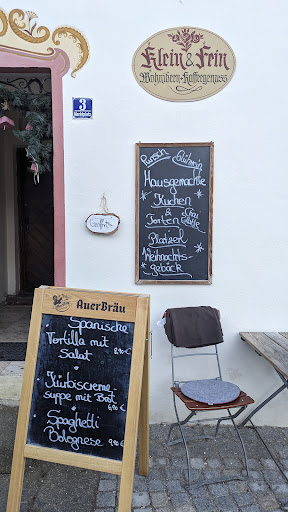 Klein & Fein
Wohnideen & Kaffeegenuss
3
Punsch Glühwein
Hausgemachte
Kuchen
&
Torten
Platzerl
Weihnachts-
gebäck
Geöffnet
AuerBräu
Spanische
Tortilla mit
Salat 8,90 €
Kürbiscreme-
suppe mit Brot
6,90 €
Spaghetti
Bolognese 9,90 €